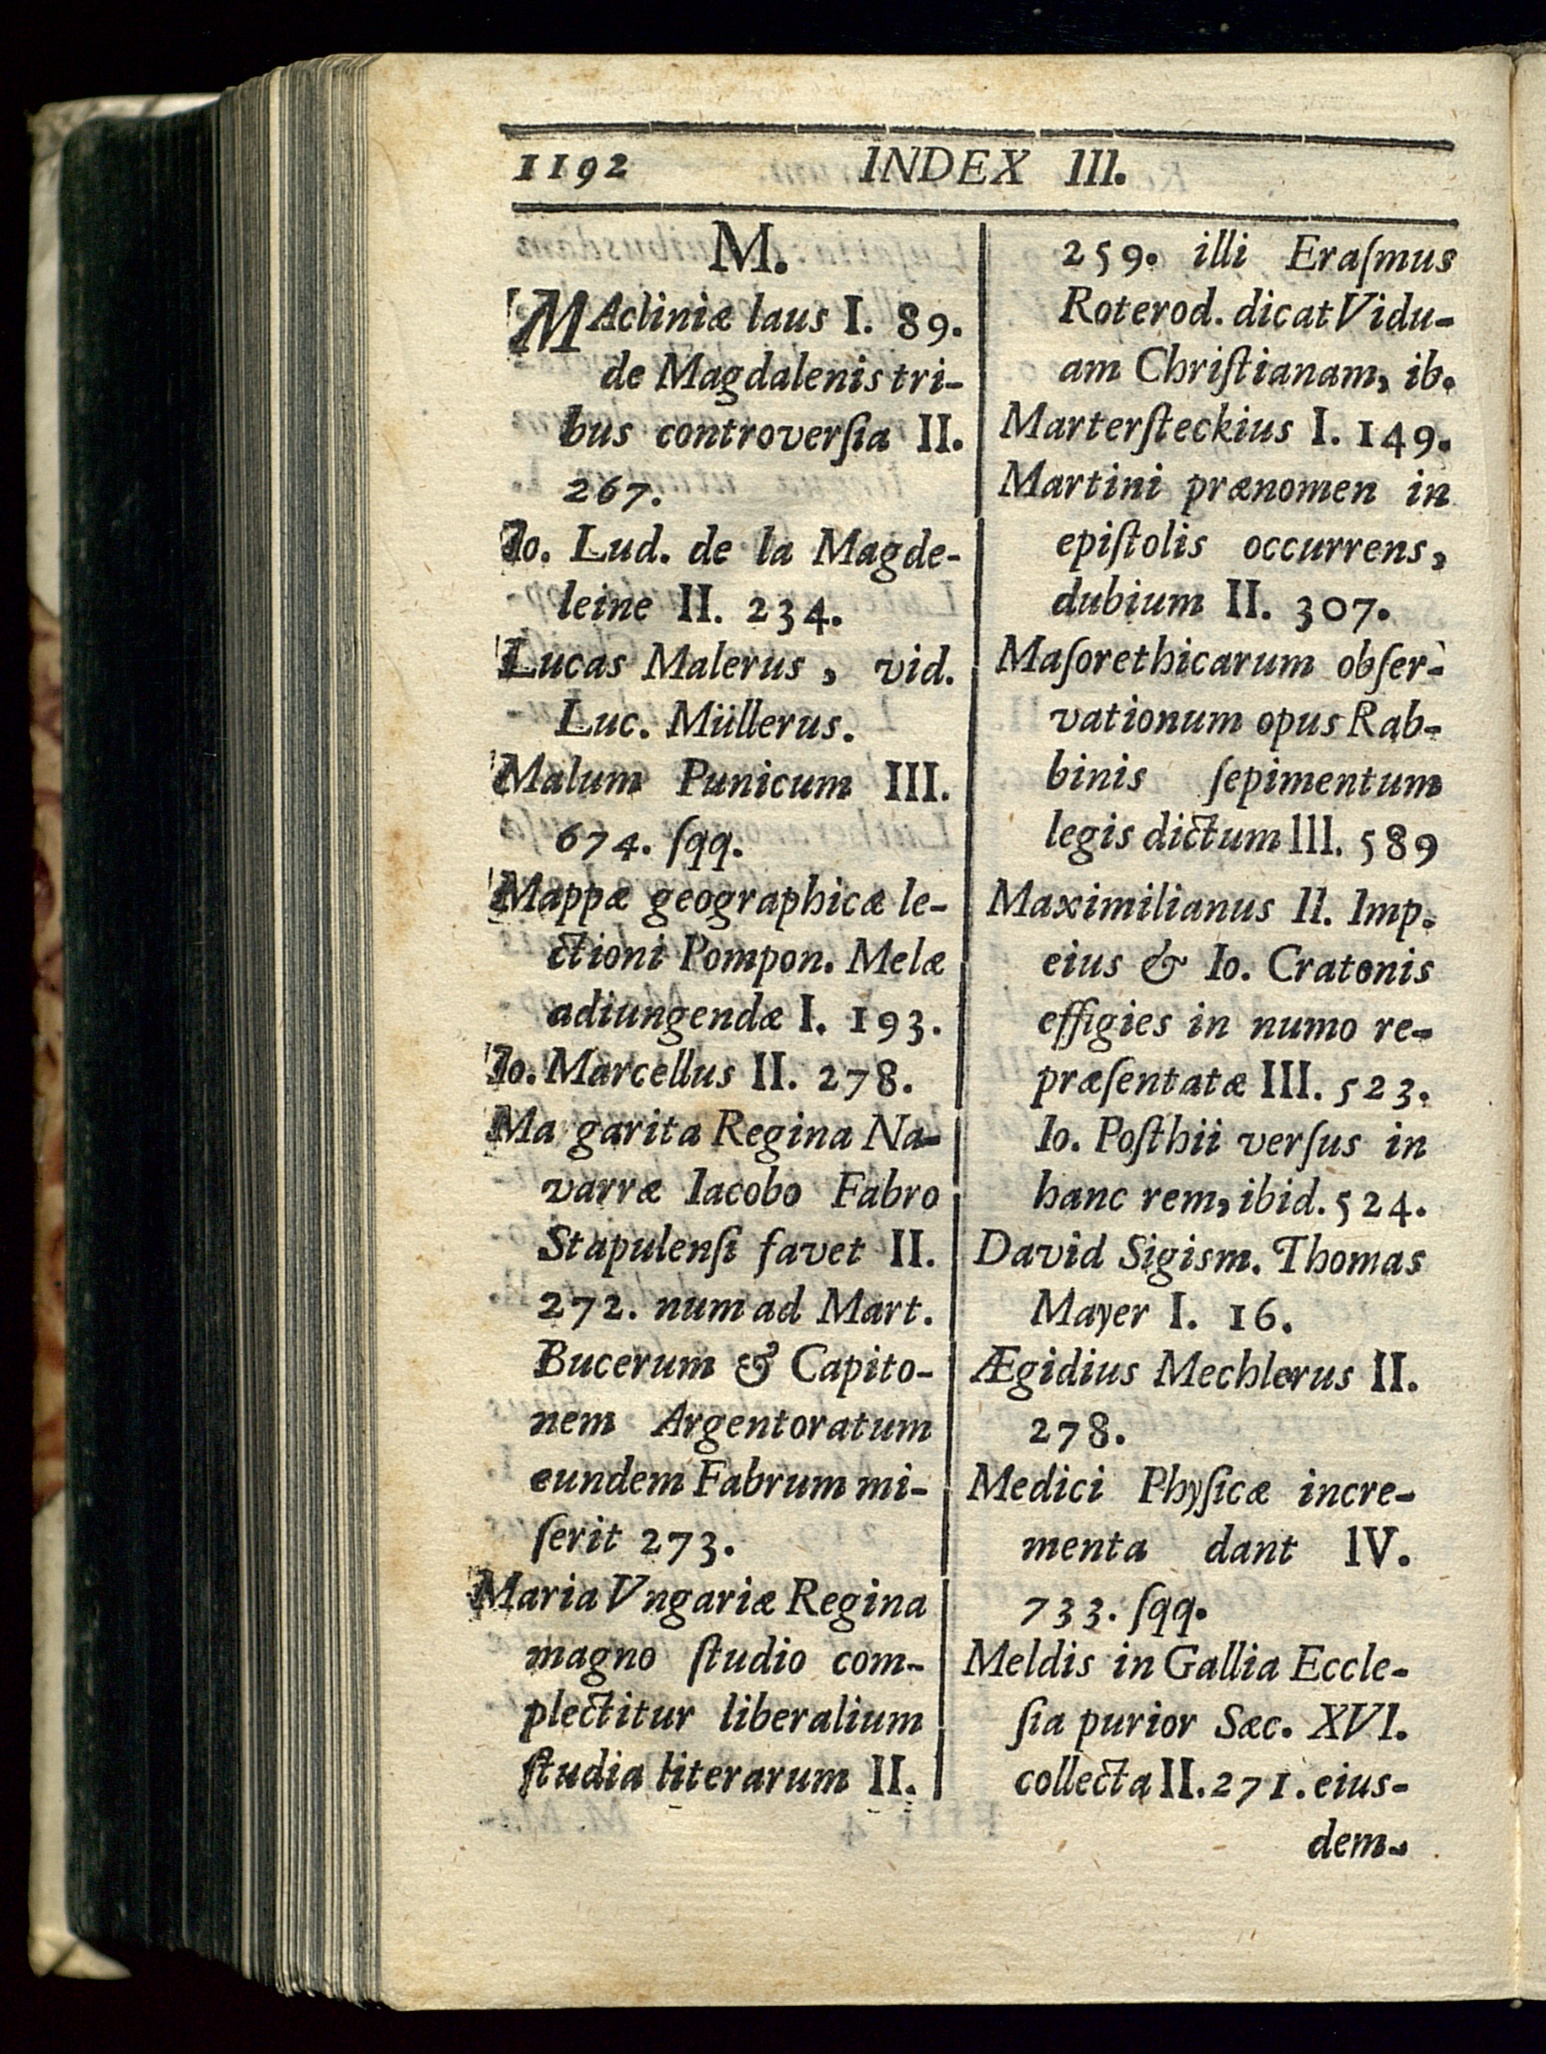 1192 INDEX III.
M.
MAcliniæ laus I. 89.
de Magdalenis tri-
bus controverſia II.
267.
Io. Lud. de la Magde-
leine II. 234.
Lucas Malerus, vid.
Luc. Müllerus.
Malum Punicum III.
674. ſqq.
Mappæ geographicæ le-
ctioni Pompon. Melæ
adiungendæ I. 193.
Io. Marcellus II. 278.
Ma garita Regina Na-
varræ Iacobo Fabro
Stapulenſi favet II.
272. num ad Mart.
Bucerum & Capito-
nem Argentoratum
eundem Fabrum mi-
ſerit 273.
Maria Vngariæ Regina
magno ſtudio com-
plectitur liberalium
ſtudia literarum II.
259. illi Eraſmus
Roterod. dicat Vidu-
am Chriſtianam, ib.
Marterſteckius I. 149.
Martini prænomen in
epiſtolis occurrens,
dubium II. 307.
Maſorethicarum obſer-
vationum opus Rab-
binis ſepimentum
legis dictum III. 589
Maximilianus II. Imp.
eius & Io. Cratonis
effigies in numo re-
præſentatæ III. 523.
Io. Poſthii verſus in
hanc rem, ibid. 524.
David Sigism. Thomas
Mayer I. 16.
Ægidius Mechlerus II.
278.
Medici Phyſicæ incre-
menta dant IV.
733. ſqq.
Meldis in Gallia Eccle-
ſia purior Sæc. XVI.
collecta II. 271. eius-
dem-